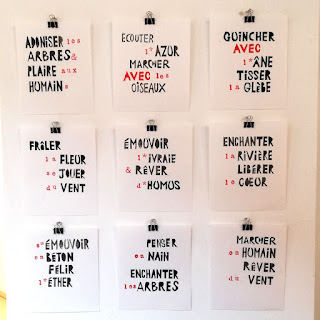 ADONISER les
ARBRES &
PLAIRE aux
HUMAINs
ECOUTER
l'AZUR
MARCHER
AVEC les
OISEAUX
GUINCHER
AVEC
l'ÂNE
TISSER
la GLÈBE
FRÔLER
la FLEUR
se JOUER
du VENT
ÉMOUVOIR
l'IVRAIE
& RÊVER
d'HOMUS
ENCHANTER
la RIVIÈRE
LIBÉRER
le COEUR
s'ÉMOUVOIR
en BÉTON
FÉLIR
l'ÉTHER
PENSER
en NAIN
ENCHANTER
les ARBRES
MARCHER
en HUMAIN
RÊVER
du VENT